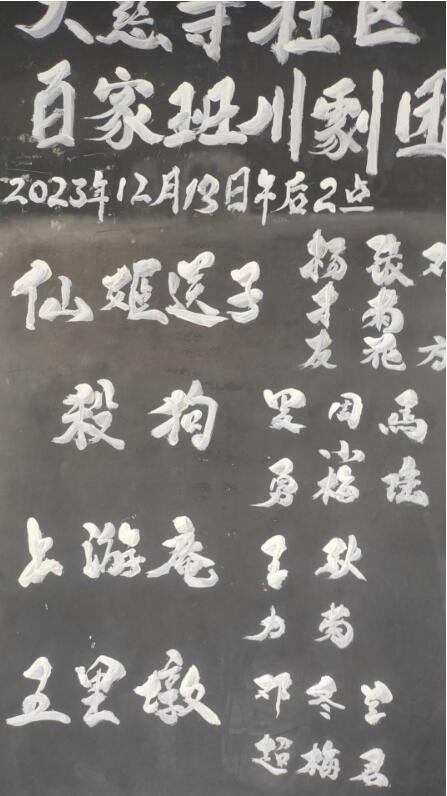 大慈寺社区
百家班川劇团
2023年12月19日午后2点
仙姬送子 杨才友 张菊花
殺狗 罗勇 周小梅 馬瑶
上游庵 王力 耿菊
五里墩 邓超 冬梅 兰君